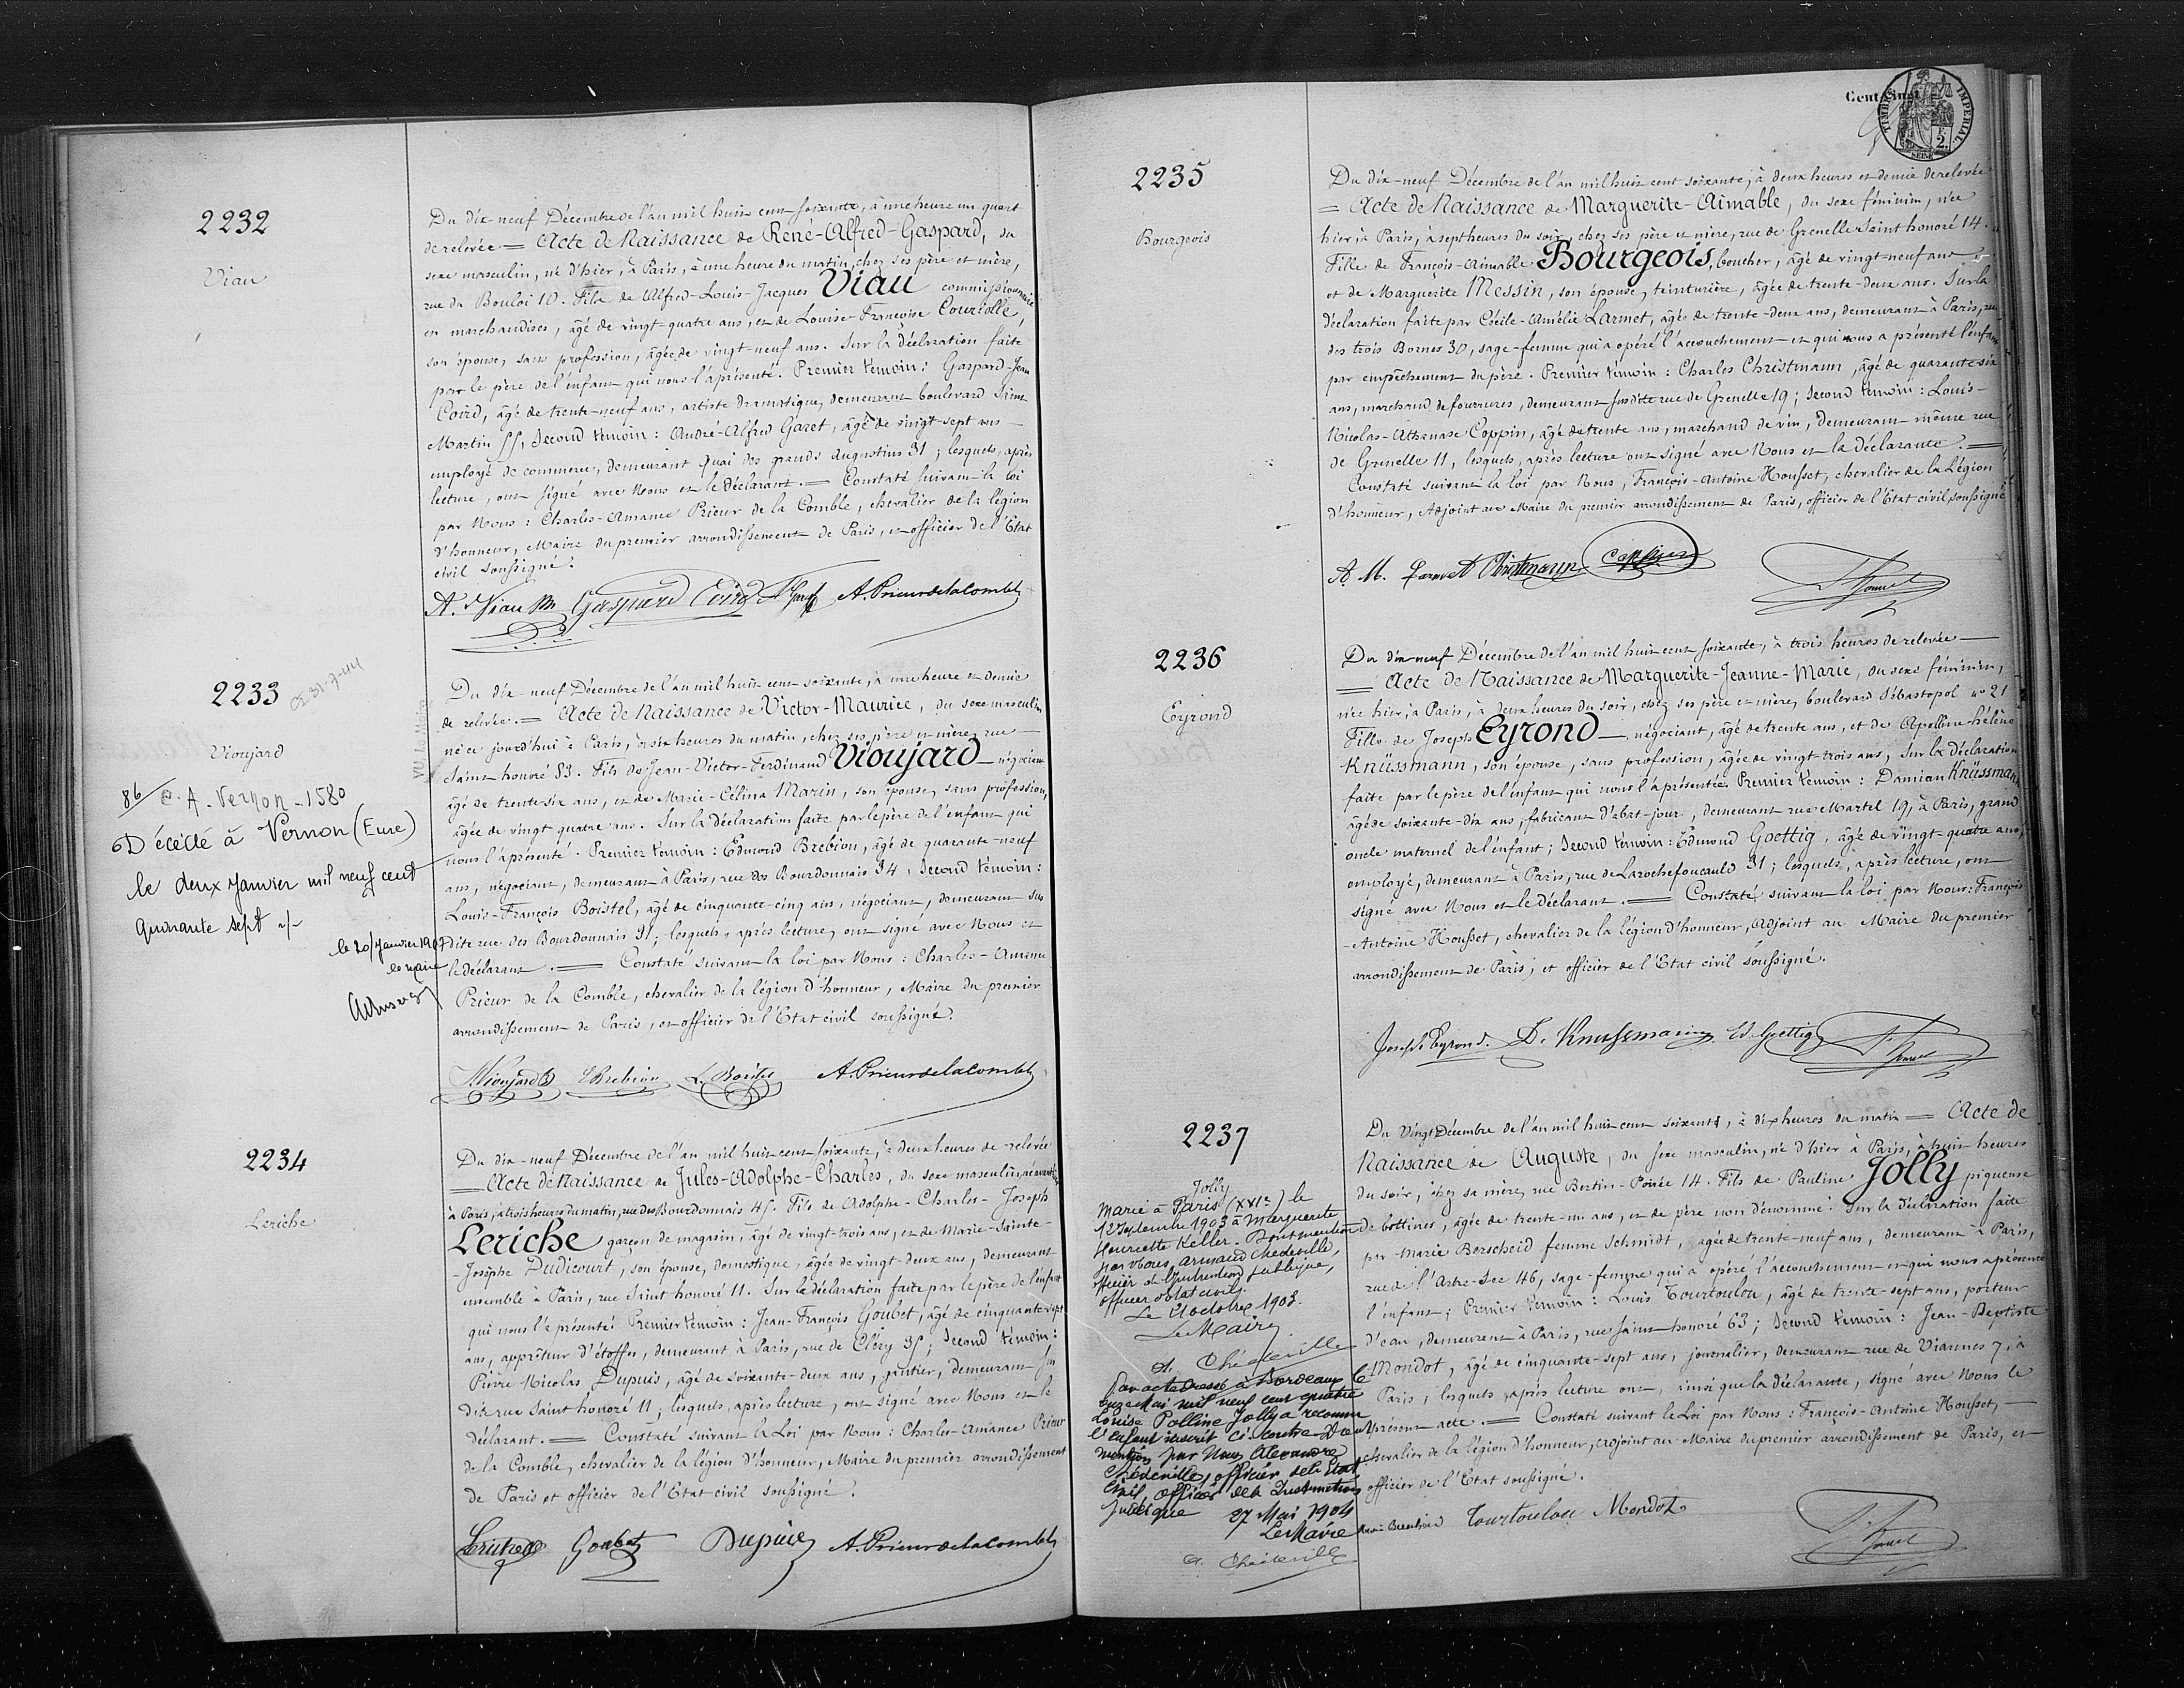 2232
Viau
Du dix neuf Décembre de l'an mil huit cent soixante, à une heure un quart
de relevée = Acte de Naissance de René-Alfred-Gaspard, du
sexe masculin, né d'hier, à Paris, à une heure du matin, chez ses père et mère,
rue du Bouloi 10. Fils de Alfred-Louis-Jacques Viau commissionnaire
en marchandises, âgé de vingt-quatre ans, et de Louise-Françoise
son épouse, sans profession, âgée de vingt-neuf ans. Sur la déclaration faite
par le père de l'enfant qui nous l'a présenté. Premier témoin: Gaspard-Jean
Coird, âgé de trente-neuf ans, artiste dramatique, demeurant boulevard Saint
Martin 55, Second témoin: André-Alfred Garet, âgé de vingt-sept ans
employé de commerce, demeurant quai des grands augustins 31; lesquels, après
lecture, ont signé avec Nous et le déclarant. = Constaté suivant la loi
par Nous: Charles-Amance Prieur de la Comble, chevalier de la légion
d'honneur, Maire du premier arrondissement de Paris, et officier de l'Etat
civil soussigné.
A. Viau Gaspard Coird A. Prieur de la Comble
2233
CE 31-7-44
Vioujard
86 / E. A. Vernon - 1580
Décédé à Vernon (Eure)
le deux janvier mil neuf cent
quarante sept ./.
le 20 janvier 1947
le maire
VU. Le Maire
Du dix-neuf Décembre de l'an mil huit cent soixante, à une heure et demie
de relevée. = Acte de Naissance de Victor-Maurice, du sexe masculin
né ce jourd'hui à Paris, à six heures du matin, chez ses père et mère, rue
Saint honoré 83. Fils de Jean-Victor-Ferdinand Vioujard négociant
âgé de trente-six ans, et de Marie-Célina Marin, son épouse, sans profession,
âgée de vingt quatre ans. Sur la déclaration faite par le père de l'enfant qui
nous l'a présenté. Premier témoin: Edmond Brebion, âgé de quarante-neuf
ans, négociant, demeurant à Paris, rue des Bourdonnais 34, Second témoin:
Louis-François Boistel, âgé de cinquante-cinq ans, négociant, demeurant sus
dite rue des Bourdonnais 31; lesquels, après lecture, ont signé avec Nous et
le déclarant. = Constaté suivant la loi par Nous: Charles-Amance
Prieur de la Comble, chevalier de la légion d'honneur, Maire du premier
arrondissement de Paris, et officier de l'Etat civil soussigné.
Vioujard E Brebion L. Boistel A. Prieur de la Comble
2234
Leriche
Du dix-neuf Décembre de l'an mil huit cent soixante, à deux heures de relevée
= Acte de Naissance de Jules-Adolphe-Charles, du sexe masculin, né avant hier
à Paris, à trois heures du matin, rue des Bourdonnais 45. Fils de Adolphe-Charles-Joseph
Leriche garçon de magasin, âgé de vingt-trois ans, et de Marie-Sainte-
-Josèphe Dudicourt, son épouse, domestique, âgée de vingt-deux ans, demeurant
ensemble à Paris, rue Saint honoré 11. Sur la déclaration faite par le père de l'enfant
qui nous l'a présenté. Premier témoin: Jean-François Goubet, âgé de cinquante-sept
ans, apprêteur d'étoffes, demeurant à Paris, rue de Cléry 35; Second témoin:
Pierre-Nicolas Dupuis, âgé de soixante-deux ans, gantier, demeurant sus
dite rue Saint honoré 11; lesquels, après lecture, ont signé avec Nous et le
déclarant. = Constaté suivant la Loi par Nous: Charles-Amance Prieur
de la Comble, chevalier de la légion d'honneur, Maire du premier arrondissement
de Paris et officier de l'Etat civil soussigné.
Leriche Goubet Dupuis A. Prieur de la Comble
Cent
TIMBRE IMPERIAL
2.
SEINE
2235
Bourgeois
Du dix-neuf Décembre de l'an mil huit cent soixante, à deux heures et demie de relevée
= Acte de Naissance de Marguerite-Aimable, du sexe féminin, née
hier, à Paris, à sept heures du soir, chez ses père et mère, rue de Grenelle Saint honoré 14.
Fille de François-Aimable Bourgeois, boucher, âgé de vingt-neuf ans
et de Marguerite Messin, son épouse, teinturière, âgée de trente-deux ans. Sur la
déclaration faite par Cécile-Amélie Larmet, âgée de trente-deux ans, demeurant à Paris, rue
des trois Bornes 30, sage-femme qui a opéré l'accouchement et qui nous a présenté l'enfant
par empêchement du père. Premier témoin: Charles Christmann, âgé de quarante-six
ans, marchand de fourrures, demeurant susdite rue de Grenelle 19; Second témoin: Louis-
Nicolas-Athanase Coppin, âgé de trente ans, marchand de vin, demeurant même rue
de Grenelle 11, lesquels, après lecture ont signé avec Nous et la déclarante. =
Constaté suivant la loi par Nous, François-Antoine Housset, chevalier de la Légion
d'honneur, Adjoint au Maire du premier arrondissement de Paris, officier de l'Etat civil soussigné
Larmet Christmann Coppin
2236
Eyrond
Du dix neuf Décembre de l'an mil huit cent soixante, à trois heures de relevée
= Acte de Naissance de Marguerite-Jeanne-Marie, du sexe féminin,
née hier, à Paris, à deux heures du soir, chez ses père et mère, boulevard Sébastopol no 21
Fille de Joseph Eyrond, négociant, âgé de trente ans, et de Apolline-hélène
Knüssmann, son épouse, sans profession, âgée de vingt-trois ans, Sur la déclaration
faite par le père de l'enfant qui nous l'a présentée. Premier témoin: Damian Knüssmann
âgé de soixante-dix ans, fabricant d'abat-jour, demeurant rue Martel 19, à Paris, grand
oncle maternel de l'enfant; Second témoin: Edmond Goettig, âgé de vingt-quatre ans,
employé, demeurant à Paris, rue de Larochefoucauld 31; lesquels, après lecture, ont
signé avec Nous et le déclarant. = Constaté suivant la loi par Nous: François
-Antoine Housset, chevalier de la légion d'honneur, Adjoint au Maire du premier
arrondissement de Paris, et officier de l'Etat civil soussigné.
Joseph Eyrond. D. Knussmann Ed. Goettig
2237
Jolly
Marié à Paris (XVIe) le
12 Septembre 1903 à Marguerite
Henriette Keller. Dont mention
par Nous, Armand Chedeville,
officier de l'Instruction publique,
officier d'état civil.
Le 21 octobre 1903.
Le Maire
A. Chédeville
Par acte dressé à Bordeaux le
onze Mai mil neuf cent quatre
Louise Polline Jolly a reconnu
l'enfant inscrit ci-contre. Dont
mention par Nous Alexandre
Chédeville, officier de l'Etat
civil, officier de l'Instruction
publique 27 Mai 1904
Le Maire
A. Chédeville
Du Vingt Décembre de l'an mil huit cent soixante, à dix heures du matin = Acte de
Naissance de Auguste, du sexe masculin, né d'hier à Paris, à huit heures
du soir, chez sa mère, rue Bertin-Poirée 14. Fils de Pauline Jolly piqueuse
de bottines, âgée de trente-un ans, et de père non dénommé. Sur la déclaration faite
par Marie Berscheid femme Schmidt, âgée de trente-neuf ans, demeurant à Paris,
rue de l'Arbre-Sec 46, sage-femme qui a opéré l'accouchement et qui nous a présenté
l'enfant; Premier témoin: Louis Tourtoulou, âgé de trente-sept ans, porteur
d'eau, demeurant à Paris, rue Saint honoré 63; Second témoin: Jean-Baptiste
Mondot, âgé de cinquante-sept ans, journalier, demeurant rue de Viarmes 7, à
Paris, lesquels, après lecture ont, ainsi que la déclarante, signé avec Nous le
présent acte. = Constaté suivant la Loi par Nous: François-Antoine Housset,
chevalier de la légion d'honneur, adjoint au Maire du premier arrondissement de Paris, et
officier de l'Etat soussigné.
Tourtoulou Mondot